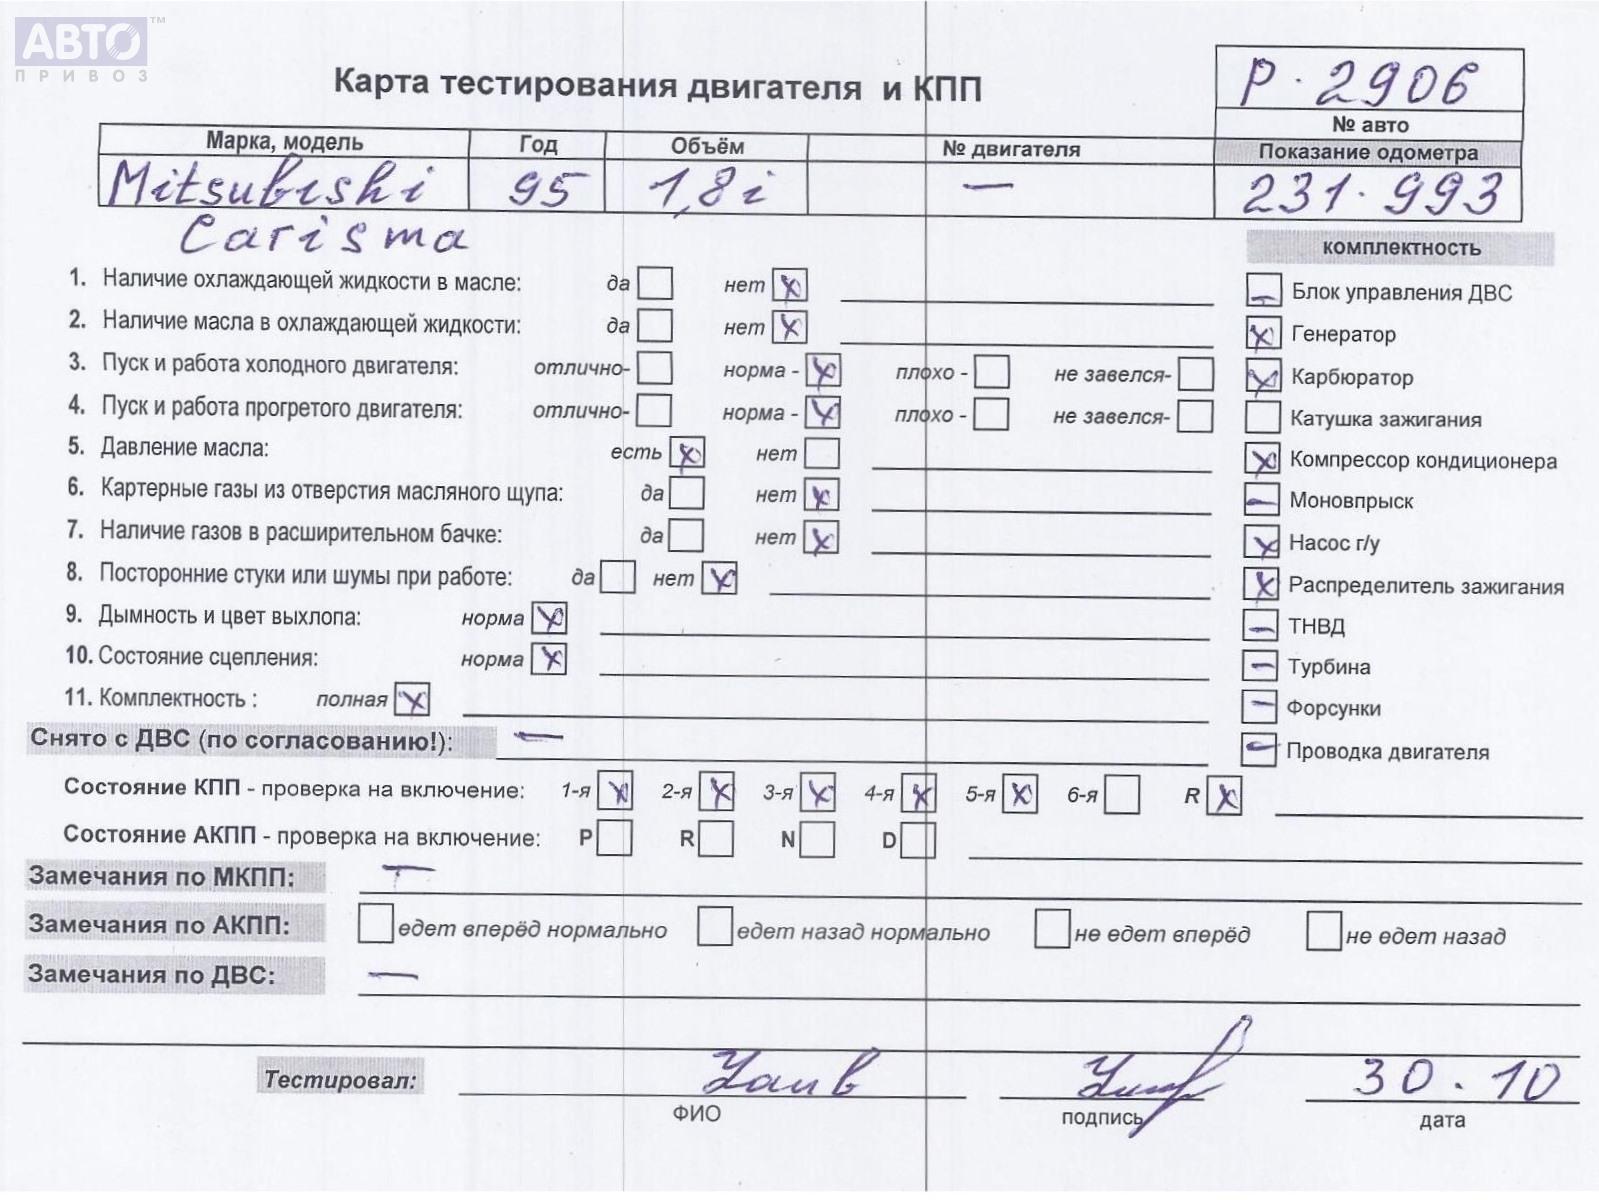 АВТО™
ПРИВОЗ
Карта тестирования двигателя и КПП
P.2906
№ авто
Марка, модель Год Объём № двигателя Показание одометра
Mitsubishi 95 1,8i — 231.993
Carisma
комплектность
1. Наличие охлаждающей жидкости в масле: да нет x
— Блок управления ДВС
2. Наличие масла в охлаждающей жидкости: да нет x
x Генератор
3. Пуск и работа холодного двигателя: отлично- норма - x плохо - не завелся-
x Карбюратор
4. Пуск и работа прогретого двигателя: отлично- норма - x плохо - не завелся-
Катушка зажигания
5. Давление масла: есть x нет
x Компрессор кондиционера
6. Картерные газы из отверстия масляного щупа: да нет x
— Моновпрыск
7. Наличие газов в расширительном бачке: да нет x
x Насос г/у
8. Посторонние стуки или шумы при работе: да нет x
x Распределитель зажигания
9. Дымность и цвет выхлопа: норма x
— ТНВД
10. Состояние сцепления: норма x
— Турбина
11. Комплектность : полная x
— Форсунки
Снято с ДВС (по согласованию!): —
— Проводка двигателя
Состояние КПП - проверка на включение: 1-я x 2-я x 3-я x 4-я x 5-я x 6-я R x
Состояние АКПП - проверка на включение: P R N D
Замечания по МКПП: —
Замечания по АКПП: едет вперёд нормально едет назад нормально не едет вперёд не едет назад
Замечания по ДВС: —
Тестировал: 30.10
ФИО подпись дата